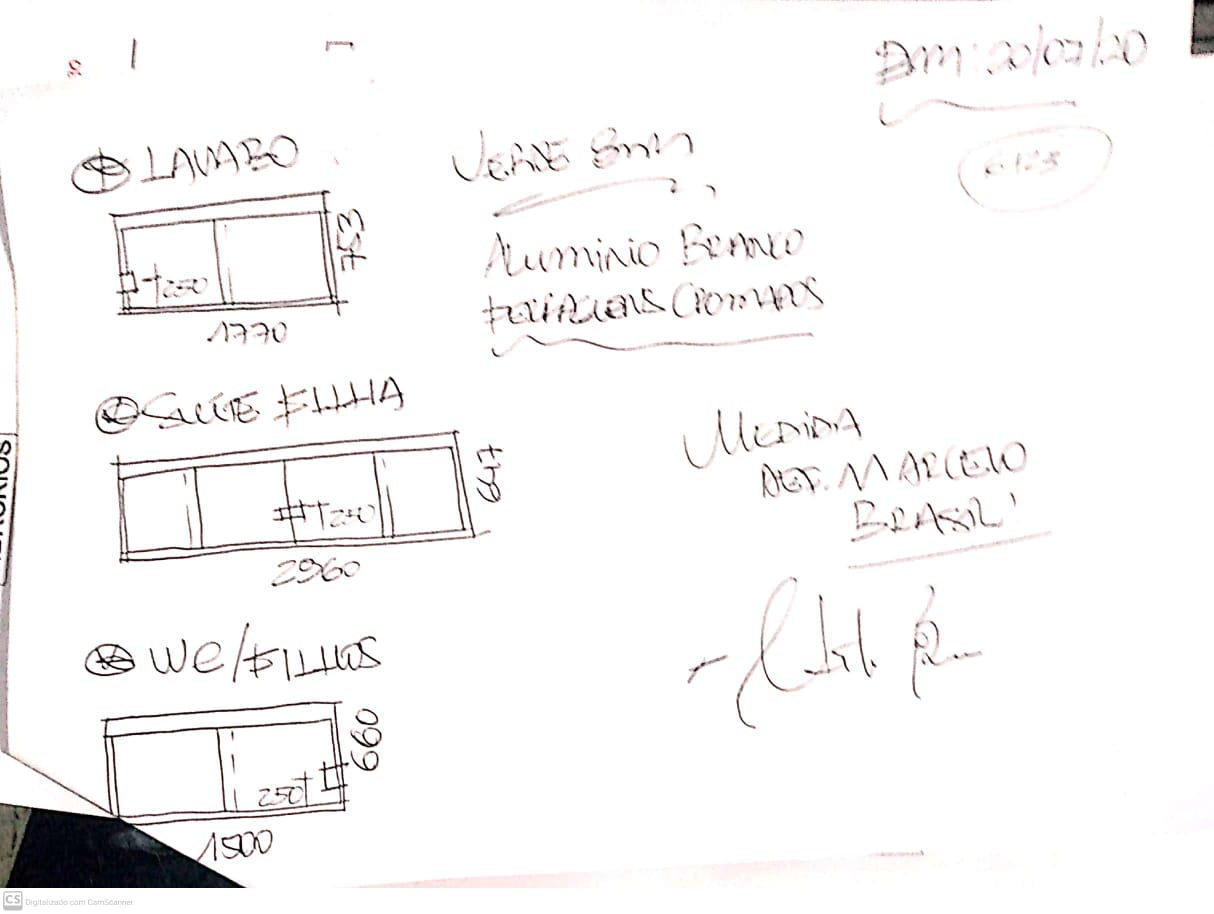 20/07/20
LAVABO
VERDE 8mm
753
250
1770
ALUMINIO BRANCO
FERRAGENS CROMADOS
SUITE FILHA
647
250
2960
MEDIDA
DEF. MARCELO
BRASIL
WC/FILHOS
660
250
1500
CS Digitalizado com CamScanner